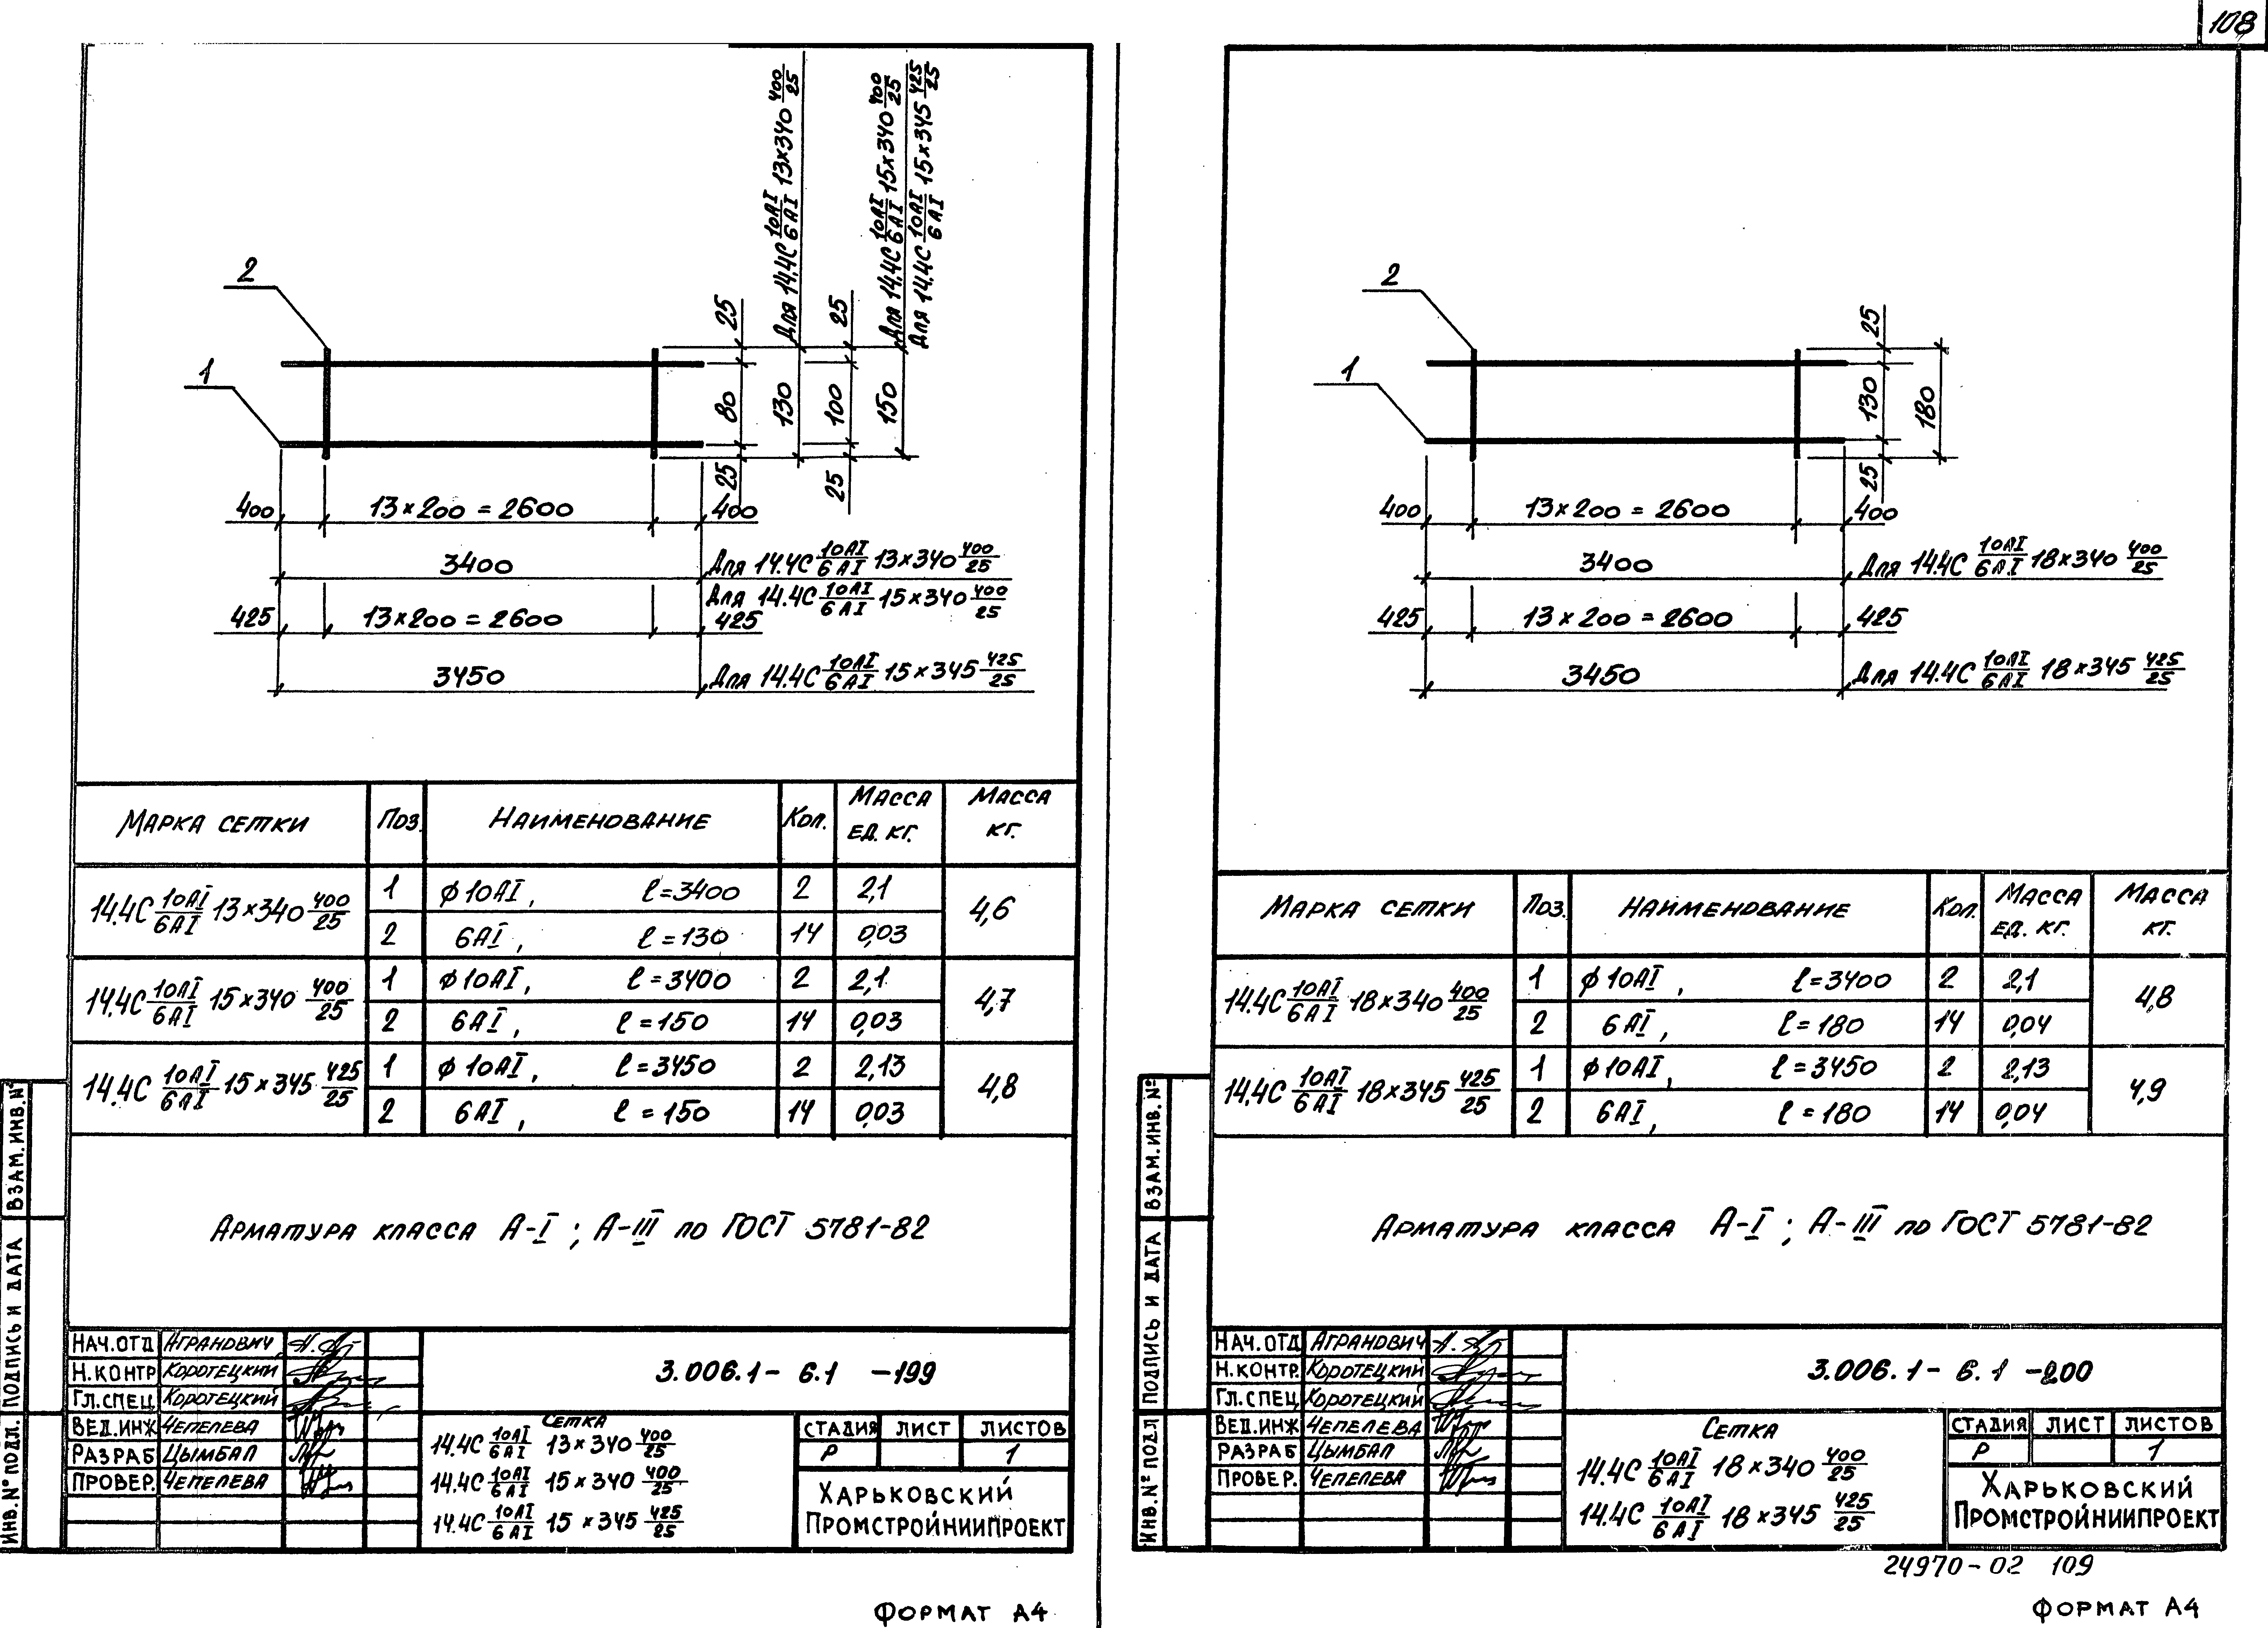 108
Для 14.4С 10АI/6АI 13×340 400/25
Для 14.4С 10АI/6АI 15×340 400/25
Для 14.4С 10АI/6АI 15×345 425/25
2
1
25
80
25
130
25
100
25
150
400 13×200=2600 400
3400 Для 14.4С 10АI/6АI 13×340 400/25
Для 14.4С 10АI/6АI 15×340 400/25
425 13×200=2600 425
3450 Для 14.4С 10АI/6АI 15×345 425/25
Марка сетки Поз. Наименование Кол. Масса ед. кг. Масса кг.
14.4С 10АI/6АI 13×340 400/25 1 ϕ10АI, ℓ=3400 2 2,1 4,6
2 6АI, ℓ=130 14 0,03
14.4С 10АI/6АI 15×340 400/25 1 ϕ10АI, ℓ=3400 2 2,1 4,7
2 6АI, ℓ=150 14 0,03
14.4С 10АI/6АI 15×345 425/25 1 ϕ10АI, ℓ=3450 2 2,13 4,8
2 6АI, ℓ=150 14 0,03
Арматура класса А-I; А-III по ГОСТ 5781-82
ИНВ.№ ПОДЛ. ПОДПИСЬ И ДАТА ВЗАМ.ИНВ.№
НАЧ.ОТД Агранович
Н.КОНТР Коротецкий
ГЛ.СПЕЦ. Коротецкий
ВЕД.ИНЖ Чепелева
РАЗРАБ Цымбал
ПРОВЕР. Чепелева
3.006.1-6.1 -199
Сетка
14.4С 10АI/6АI 13×340 400/25
14.4С 10АI/6АI 15×340 400/25
14.4С 10АI/6АI 15×345 425/25
СТАДИЯ ЛИСТ ЛИСТОВ
Р 1
ХАРЬКОВСКИЙ
ПРОМСТРОЙНИИПРОЕКТ
ФОРМАТ А4
2
1
25
130
25
180
400 13×200=2600 400
3400 Для 14.4С 10АI/6АI 18×340 400/25
425 13×200=2600 425
3450 Для 14.4С 10АI/6АI 18×345 425/25
Марка сетки Поз. Наименование Кол. Масса ед. кг. Масса кг.
14.4С 10АI/6АI 18×340 400/25 1 ϕ10АI, ℓ=3400 2 2,1 4,8
2 6АI, ℓ=180 14 0,04
14.4С 10АI/6АI 18×345 425/25 1 ϕ10АI, ℓ=3450 2 2,13 4,9
2 6АI, ℓ=180 14 0,04
Арматура класса А-I; А-III по ГОСТ 5781-82
ИНВ.№ ПОДЛ ПОДПИСЬ И ДАТА ВЗАМ.ИНВ.№
НАЧ.ОТД Агранович
Н.КОНТР. Коротецкий
ГЛ.СПЕЦ Коротецкий
ВЕД.ИНЖ Чепелева
РАЗРАБ Цымбал
ПРОВЕР. Чепелева
3.006.1-6.1 -200
Сетка
14.4С 10АI/6АI 18×340 400/25
14.4С 10АI/6АI 18×345 425/25
СТАДИЯ ЛИСТ ЛИСТОВ
Р 1
ХАРЬКОВСКИЙ
ПРОМСТРОЙНИИПРОЕКТ
24970-02 109
ФОРМАТ А4